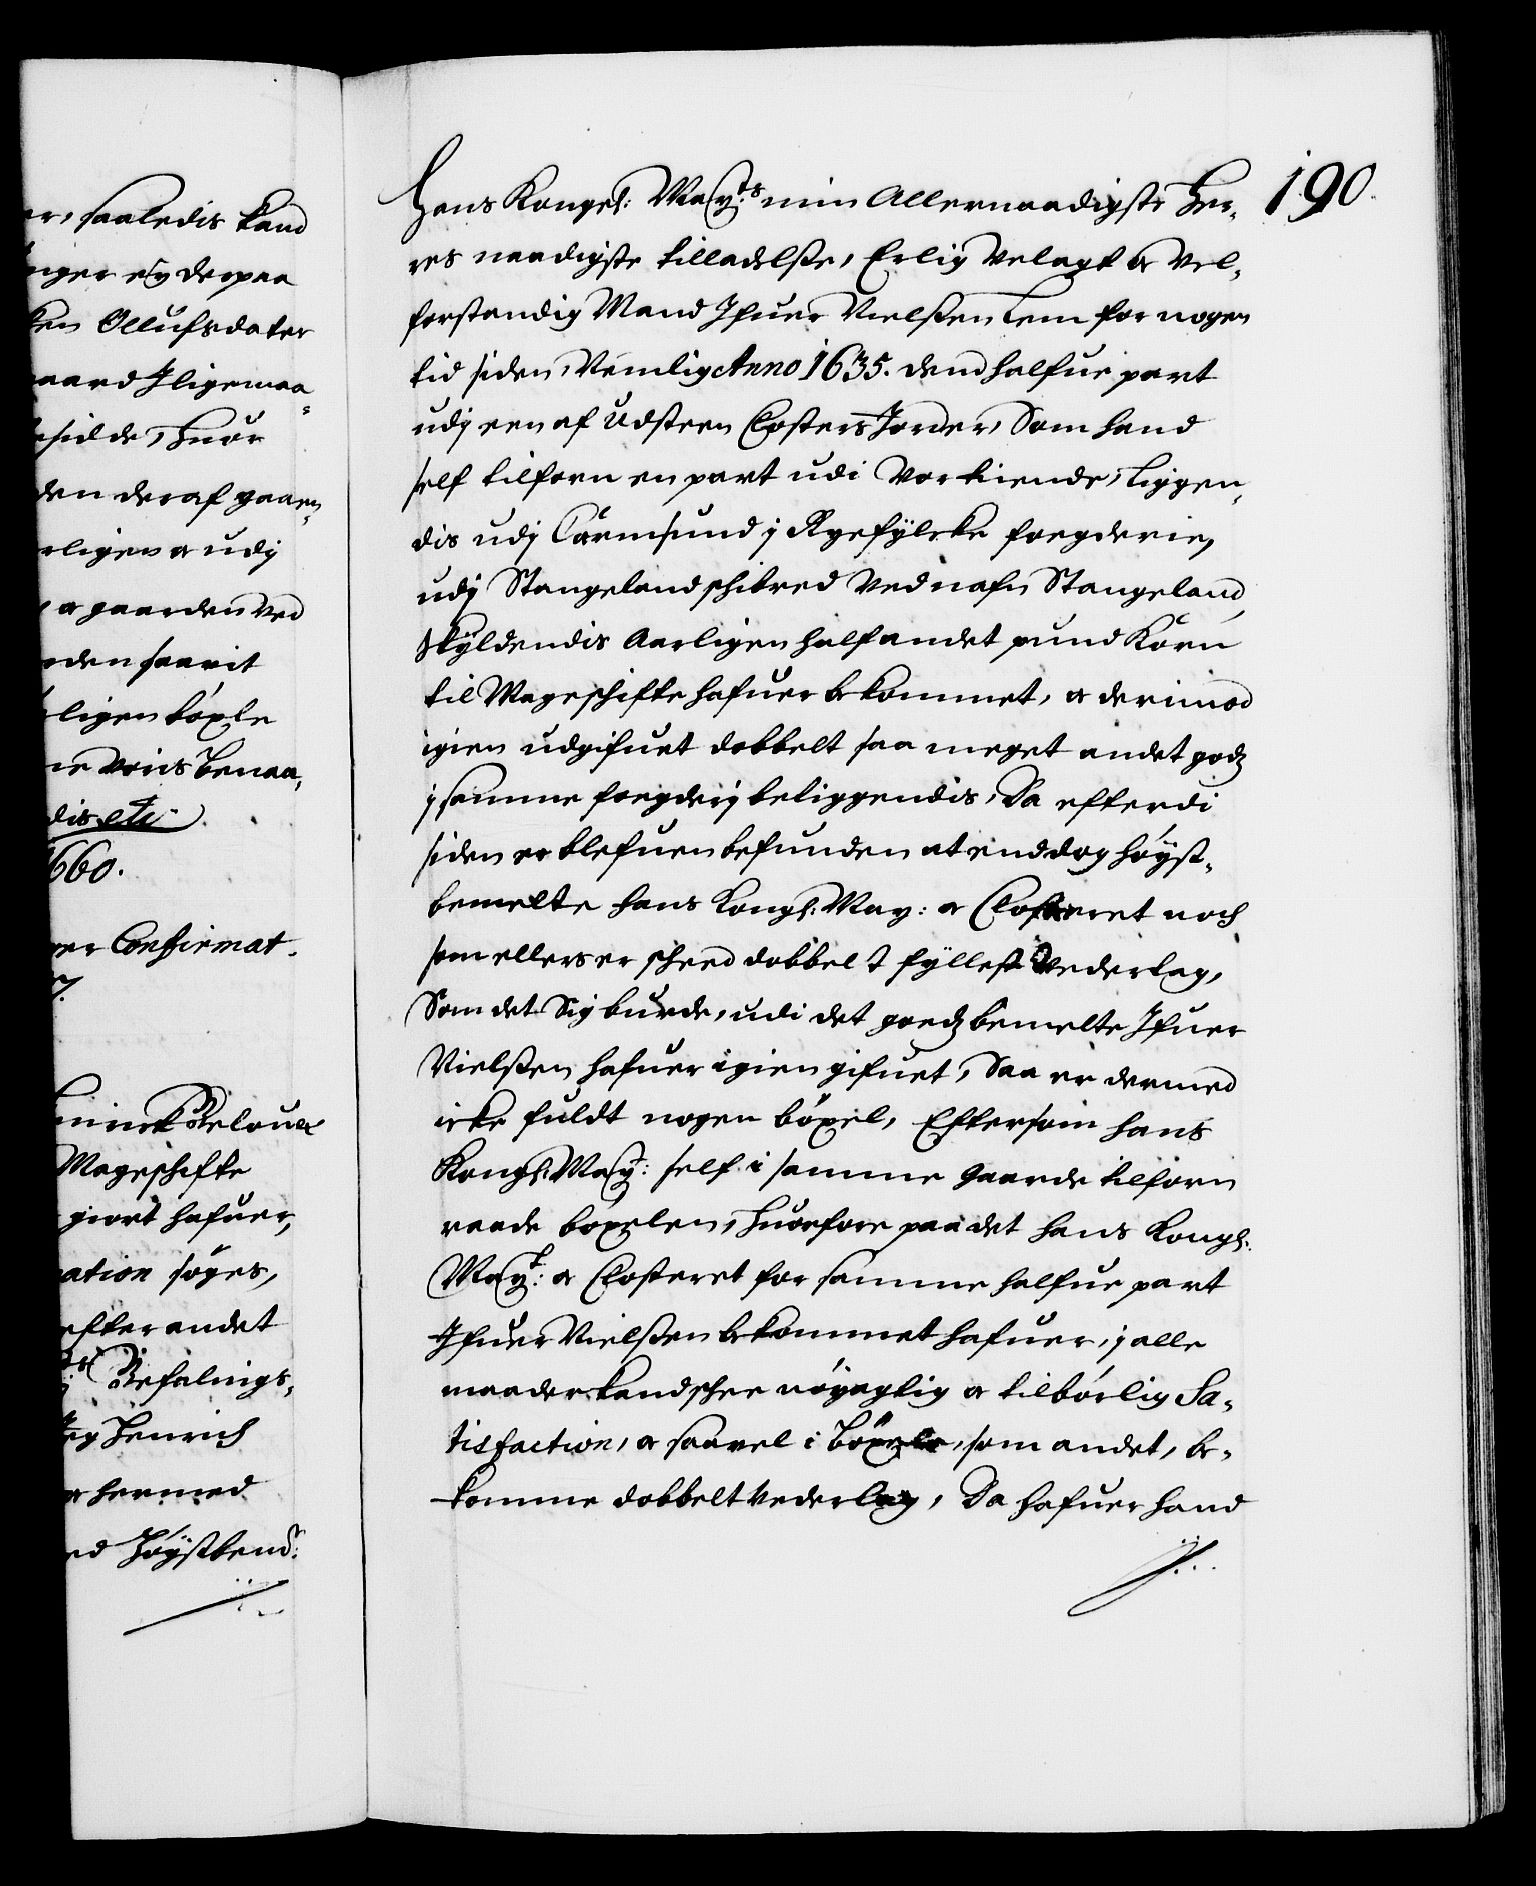 ar, saaledis kand
nger eÿ derpaa
ken Ollufsdater
gaard Iligemaa-
sidde, huor
den deraf gaaen-
rligen og udj
, og gaarden ved
den saavit
ligen böxle
Benaa-
dis etc.
660.
er Confirmat.
7.
Mageschifte
giort hafuer,
ation söges,
efter andet
Befalings-
Jeg Henrich
og hermed
ed Höystbemt:
190.
Hans Kongel: Mayts min Allernaadigste Her-
res naadigste tilladelse, Erlig Velagt og Vel-
forstandig Mand Ifuer Nielssen Lem for nogen
tid siden, Nemlig Anno 1635. dend halfue part
udj een af Udsteen Closters Jorder, Som hand
self tilforn en part udi Vorkiende, Liggen-
dis udj Carmsund j Ryefÿlcke foegderie,
udj Stangeland schibred Ved nafn Stangeland,
Skÿldendis Aarligen half andet pund Korn
til Mageschifte hafuer bekommet, og derimod
igien udgifuet dobbelt saa meget andet godz
j samme foegderj beliggendis, Da efterdi
siden er blefuen befunden at enddog höyst-
bemelte hans Kongl: May: og Closteret noch
som ellers er scheed dobbelt fyllest Vederlag,
Som det Sig burde, udi det goedz bemelte Ifuer
Nielssen hafuer igien gifuet, Saa er dermed
icke fuldt nogen böxel, Eftersom hans
Kongl: May: self i samme Gaarde tilforn
raade böxelen, Huorfore paa det hans Kongl:
Mayt: og Closteret for samme halfue part
Ifuer Nielssen bekommet hafuer, j alle
maader kand schee nöyagtig og tilbörlig Sa-
tisfaction, og saavel i Böxele, som andet, be-
komme dobbelt Vederlag, Da hafuer hand